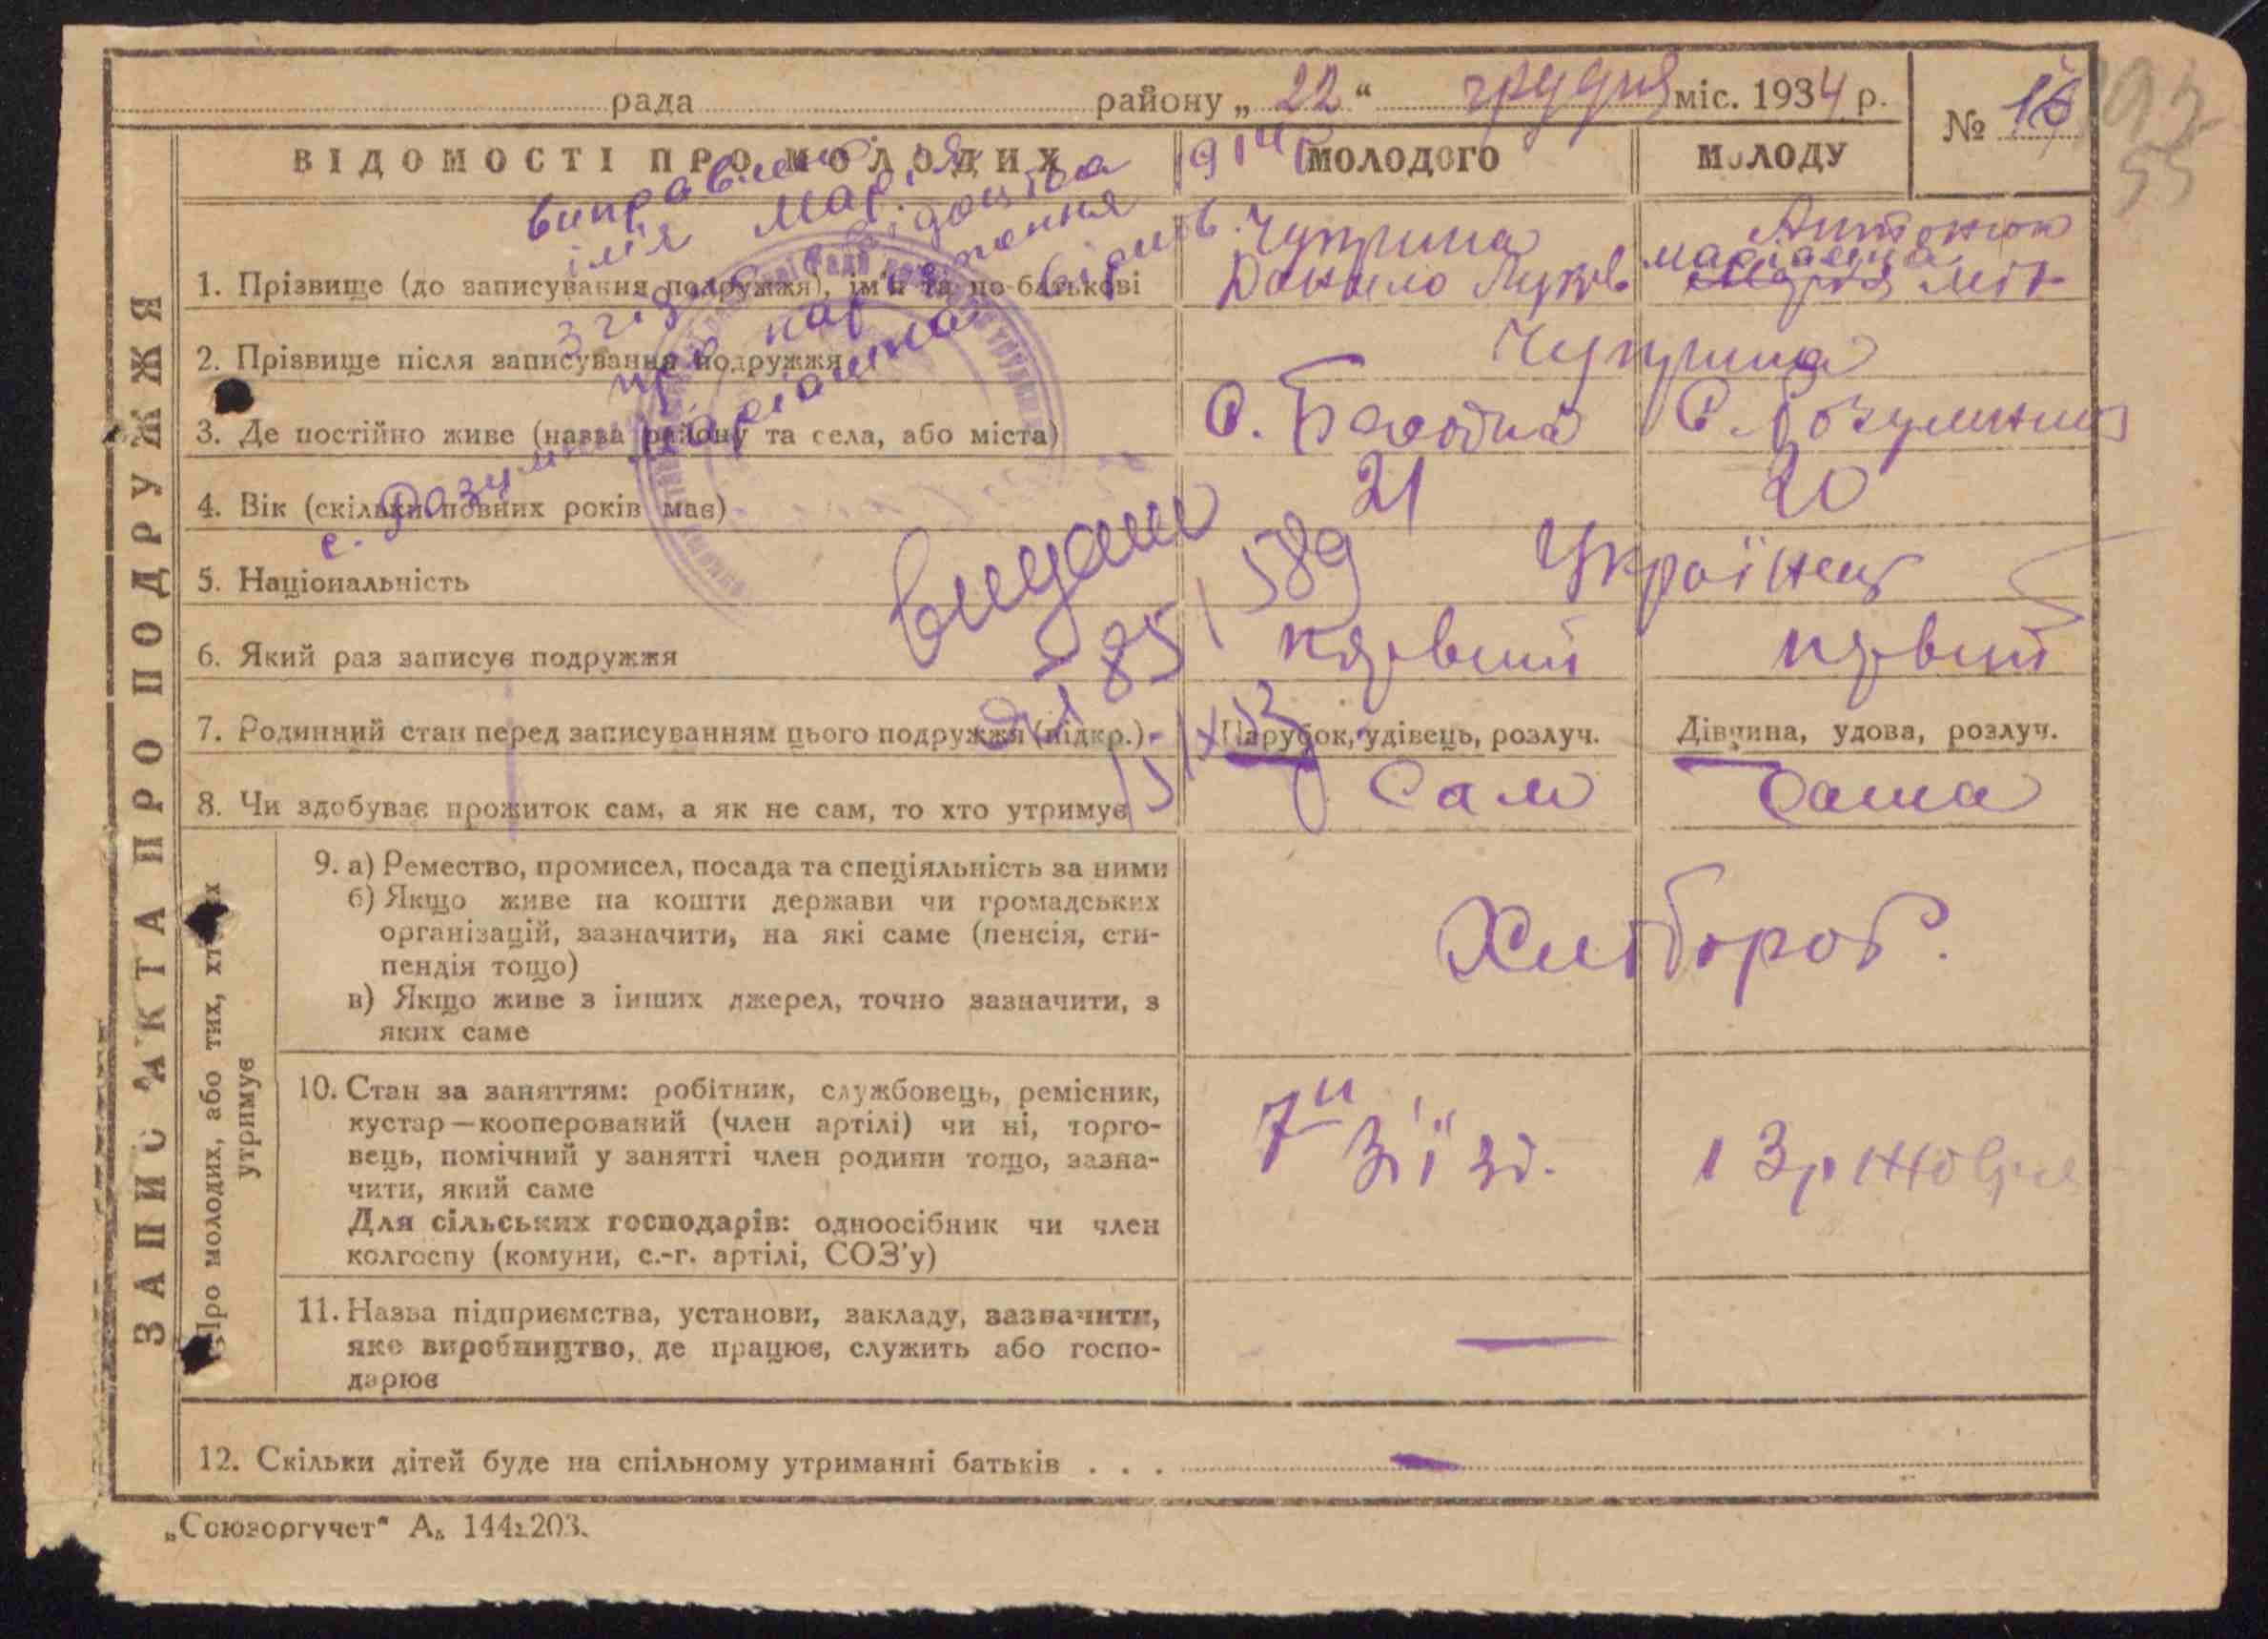 рада району „22“ грудня міс. 1934 р.
№ 16
ЗАПИС АКТА ПРО ПОДРУЖЖЯ
ВІДОМОСТІ ПРО МОЛОДИХ
МОЛОДОГО
МОЛОДУ
виправлено
ім'я Марія
згідно свідоцтва
про народження
Маріанна вірить
с. Розумниця
1914 р
1. Прізвище (до записування подружжя), ім'я та по-батькові
Чуприна
Данило Луков
Антонюк
Маріанна
Марія Мит
2. Прізвище після записування подружжя
Чуприна
3. Де постійно живе (назва району та села, або міста)
с. Безодна
с. Розумниця
4. Вік (скільки повних років має)
21
20
5. Національність
Українець
видани
6. Який раз записує подружжя
первий
первий
7. Родинний стан перед записуванням цього подружжя (підкр.).
Парубок, удівець, розлуч.
Дівчина, удова, розлуч.
8. Чи здобуває прожиток сам, а як не сам, то хто утримує
Сам
Сама
Про молодих, або тих, хто їх утримує
9. а) Ремество, промисел, посада та спеціяльність за ними
б) Якщо живе на кошти держави чи громадських
організацій, зазначити, на які саме (пенсія, сти-
пендія тощо)
в) Якщо живе з інших джерел, точно зазначити, з
яких саме
Хлібороб.
10. Стан за заняттям: робітник, службовець, ремісник,
кустар — кооперований (член артілі) чи ні, торго-
вець, помічний у занятті член родини тощо, зазна-
чити, який саме
Для сільських господарів: одноосібник чи член
колгоспу (комуни, с.-г. артілі, СОЗ'у)
13 р жовтня
11. Назва підприємства, установи, закладу, зазначити,
яке виробництво, де працює, служить або госпо-
дарює
12. Скільки дітей буде на спільному утриманні батьків . . .
„Союзоргучет“